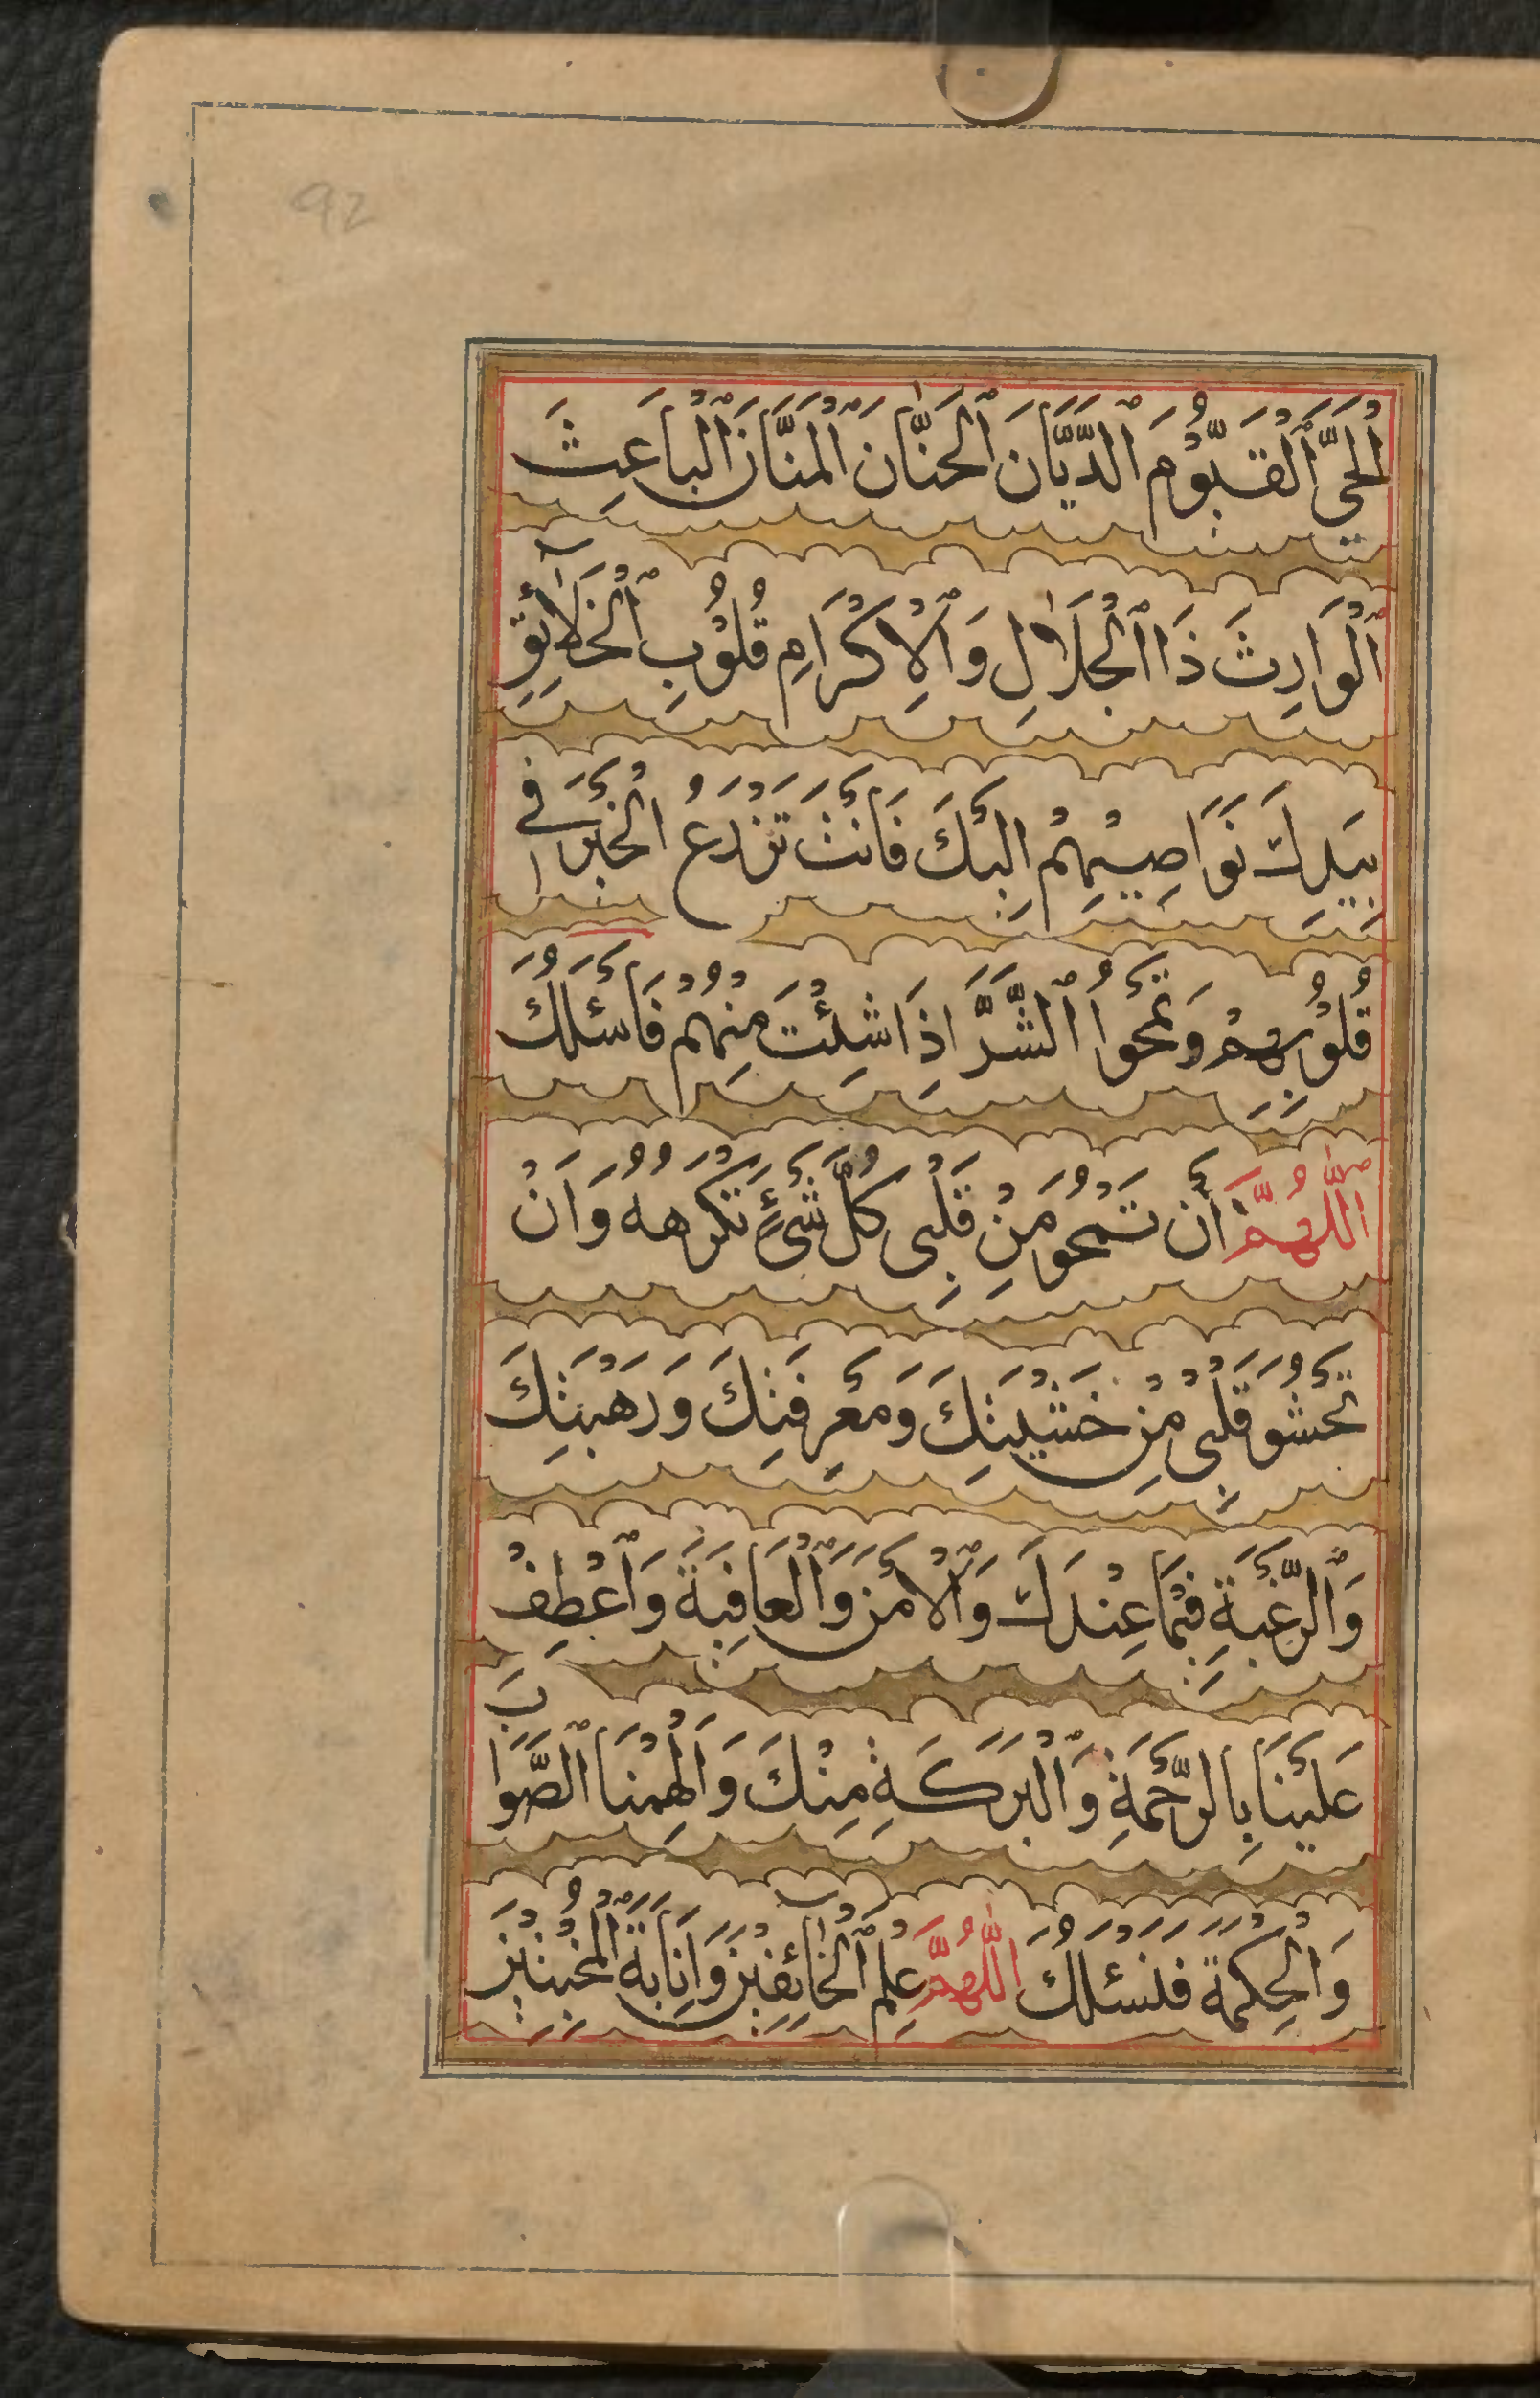 92
اَلْحَيَّ ٱلْقَيُّوْمَ ٱلدَّيَّانَ ٱلْحَنَّانَ ٱلْمَنَّانَ ٱلْبَاعِثَ
ٱلْوَارِثَ ذَا الْجَلَالِ وَٱلْاِكْرَامِ قُلُوْبِ ٱلْخَلَآئِقِ
بِيَدِكَ نَوَاصِيْهِمْ اِلَيْكَ فَاَنْتَ تَزْرَعُ الْخَيْرَ فِى
قُلُوْبِهِمْ وَتَمْحُواُ ٱلشَّرَّ اِذَا شِئْتَ مِنْهُمْ فَاَسْئَلُكَ
اَللّٰهُمَّ أَنْ تَمْحُوَ مِنْ قَلْبِى كُلَّ شَىْءٍ تَكْرَهُهُ وَاَنْ
تَحْشُوَ قَلْبِى مِنْ خَشْيَتِكَ وَمَعْرِفَتِكَ وَرَهْبَتِكَ
وَٱلرَّغْبَةِ فِيْمَا عِنْدَكَ وَٱلْاَمْنَ وَٱلْعَافِيَةَ وَٱعْطِفْ
عَلَيْنَا بِالرَّحْمَةِ وَٱلْبَرَكَةِ مِنْكَ وَاَلْهِمْنَا ٱلصَّوَابَ
وَالْحِكْمَةَ فَنَسْئَلُكَ اَللّٰهُمَّ عِلْمَ ٱلْخَآئِفِيْنَ وَاِنَابَةَ ٱلْمُخْبِتِيْنَ